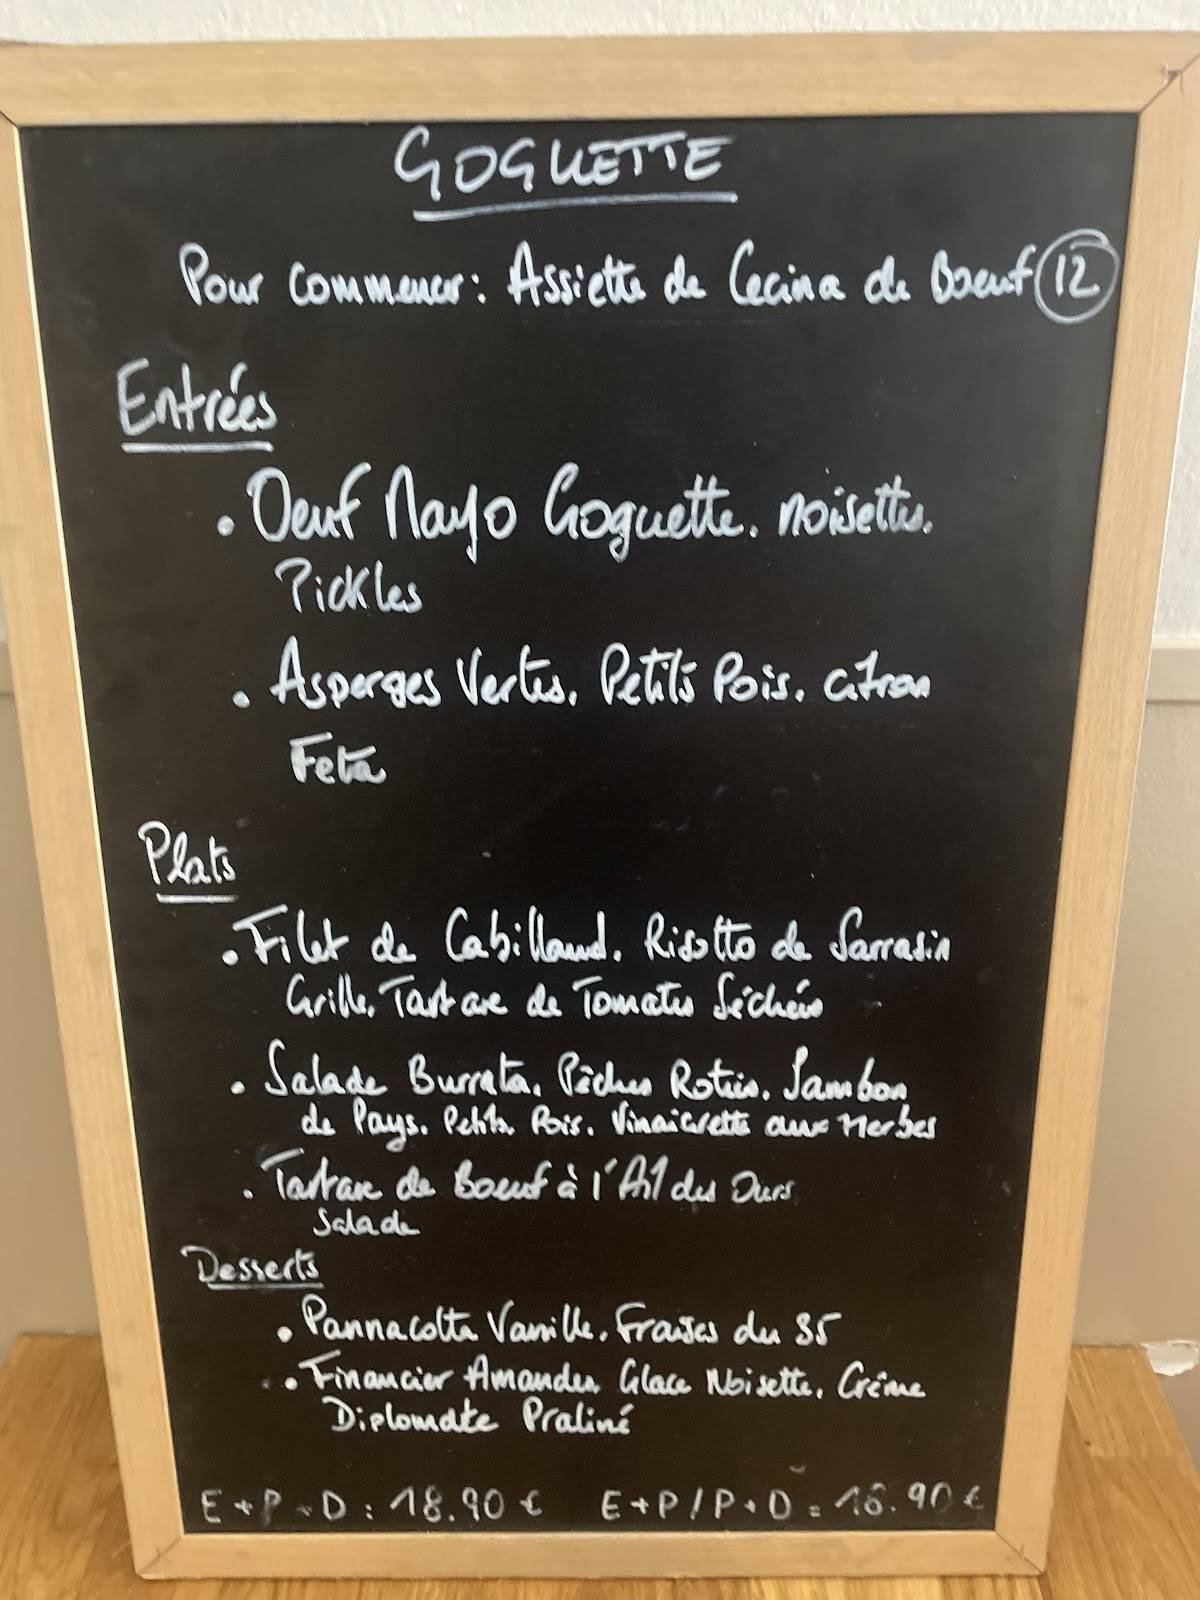 GOGUETTE
Pour commencer: Assiette de Cecina de Boeuf 12
Entrées
• Oeuf Mayo Goguette. noisettes.
Pickles
• Asperges Vertes. Petits Pois. citron
Feta
Plats
• Filet de Cabillaud. Risotto de Sarrasin
Grillé. Tartare de Tomates Séchées
• Salade Burrata. Pêches Roties. Jambon
de Pays. Petits. Pois. Vinaigrette aux Herbes
• Tartare de Boeuf à l'Ail des Ours
Salade
Desserts
• Pannacotta Vanille. Fraises du 35
• Financier Amandes. Glace Noisette. Crème
Diplomate Praliné
E + P + D : 18.90 € E + P / P + D = 16.90 €